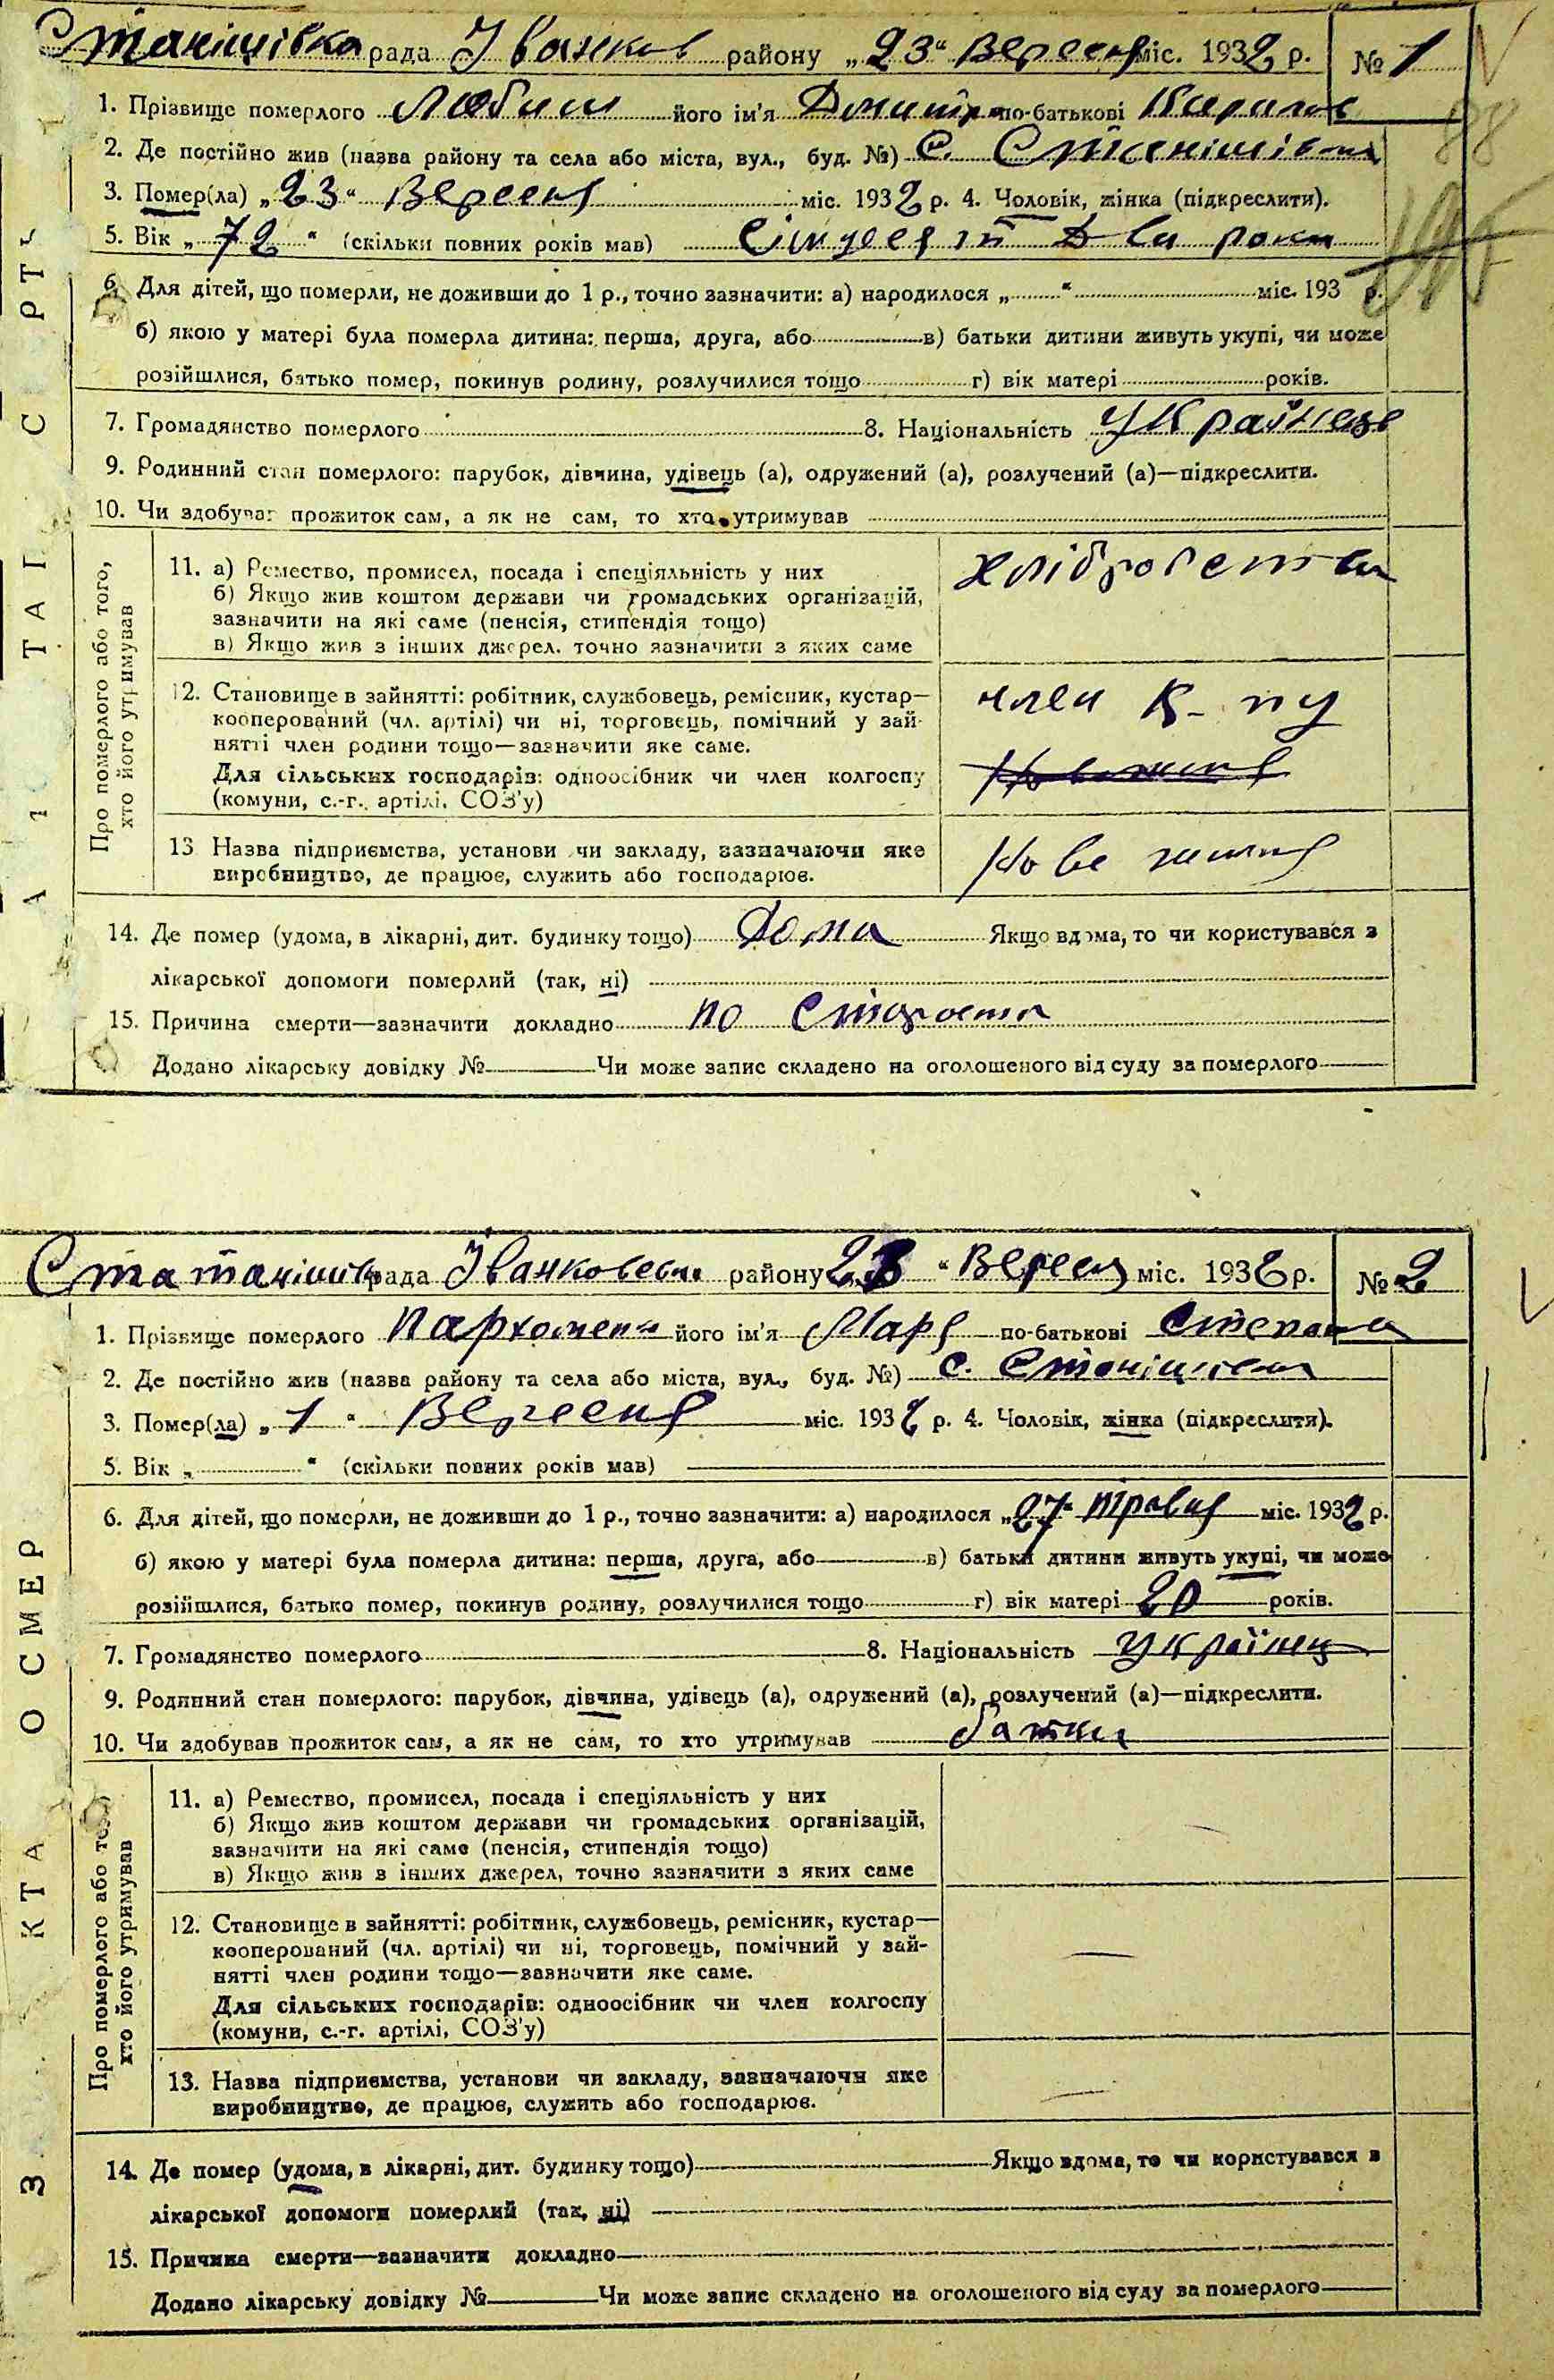 Станішівка рада Іванков району „23“ Вересня міс. 1932 р. № 1
1. Прізвище померлого його ім'я Дмитро по-батькові Кирилов
2. Де постійно жив (назва району та села або міста, вул., буд. №) С. Станішівка
3. Помер(ла) „23“ Вересня міс. 1932 р. 4. Чоловік, жінка (підкреслити).
5. Вік „72“ (скільки повних років мав) Сімдесят Два роки
6. Для дітей, що померли, не доживши до 1 р., точно зазначити: а) народилося „ “ міс. 193 р.
б) якою у матері була померла дитина: перша, друга, або в) батьки дитини живуть укупі, чи може
розійшлися, батько помер, покинув родину, розлучилися тощо г) вік матері років.
7. Громадянство померлого 8. Національність Українець
9. Родинний стан померлого: парубок, дівчина, удівець (а), одружений (а), розлучений (а)—підкреслити.
10. Чи здобував прожиток сам, а як не сам, то хто утримував
Про померлого або того,
хто його утримував
11. а) Ремество, промисел, посада і спеціяльність у них хліборобство
б) Якщо жив коштом держави чи громадських організацій,
зазначити на які саме (пенсія, стипендія тощо)
в) Якщо жив з інших джерел, точно зазначити з яких саме
12. Становище в зайнятті: робітник, службовець, ремісник, кустар— член К-пу
кооперований (чл. артілі) чи ні, торговець, помічний у зай-
нятті член родини тощо—зазначити яке саме.
Для сільських господарів: одноосібник чи член колгоспу
(комуни, с.-г. артілі, СОЗ'у)
13 Назва підприємства, установи чи закладу, зазначаючи яке Нове життя
виробництво, де працює, служить або господарює.
14. Де помер (удома, в лікарні, дит. будинку тощо) Дома Якщо вдома, то чи користувався з
лікарської допомоги померлий (так, ні)
15. Причина смерти—зазначити докладно по Старости
Додано лікарську довідку № Чи може запис складено на оголошеного від суду за померлого
рада Іванковськ району „23“ Вересня міс. 1932 р. № 2
1. Прізвище померлого Пархоменко його ім'я Марія по-батькові Степанов
2. Де постійно жив (назва району та села або міста, вул., буд. №) с. Станішівка
3. Помер(ла) „1“ Вересня міс. 1932 р. 4. Чоловік, жінка (підкреслити).
5. Вік „ “ (скільки повних років мав)
6. Для дітей, що померли, не доживши до 1 р., точно зазначити: а) народилося „27“ травня міс. 1932 р.
б) якою у матері була померла дитина: перша, друга, або в) батьки дитини живуть укупі, чи може
розійшлися, батько помер, покинув родину, розлучилися тощо г) вік матері 20 років.
7. Громадянство померлого 8. Національність Українец
9. Родинний стан померлого: парубок, дівчина, удівець (а), одружений (а), розлучений (а)—підкреслити.
10. Чи здобував прожиток сам, а як не сам, то хто утримував батьки
Про померлого або того,
хто його утримував
11. а) Ремество, промисел, посада і спеціяльність у них
б) Якщо жив коштом держави чи громадських організацій,
зазначити на які саме (пенсія, стипендія тощо)
в) Якщо жив з інших джерел, точно зазначити з яких саме
12. Становище в зайнятті: робітник, службовець, ремісник, кустар—
кооперований (чл. артілі) чи ні, торговець, помічний у зай-
нятті член родини тощо—зазначити яке саме.
Для сільських господарів: одноосібник чи член колгоспу
(комуни, с.-г. артілі, СОЗ'у)
13. Назва підприємства, установи чи закладу, зазначаючи яке
виробництво, де працює, служить або господарює.
14. Де помер (удома, в лікарні, дит. будинку тощо) Якщо вдома, то чи користувався з
лікарської допомоги померлий (так, ні)
15. Причина смерти—зазначити докладно
Додано лікарську довідку № Чи може запис складено на оголошеного від суду за померлого